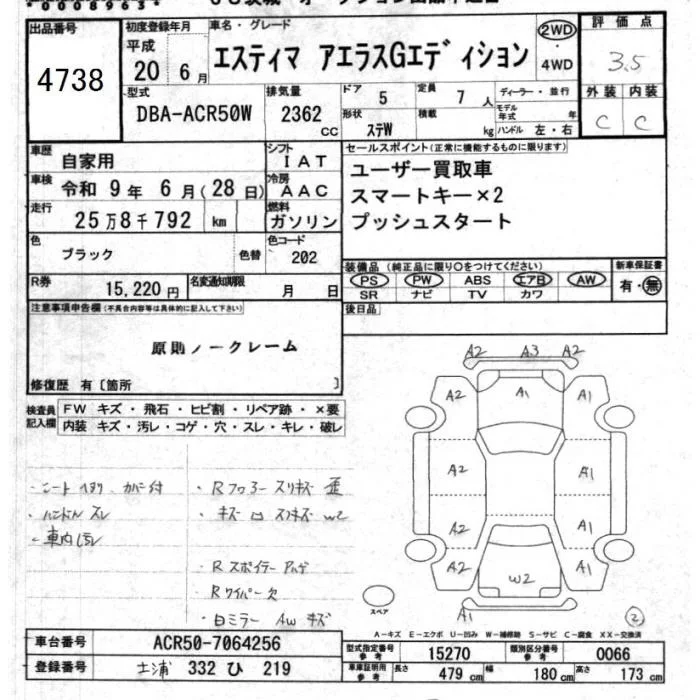 *00089963*
出品番号
4738
初度登録年月
平成
20 6 月
車名・グレード
エスティマ アエラスGエディション
2WD
・
4WD
評価点
3.5
外装 内装
C C
型式
DBA-ACR50W
排気量
2362
cc
ドア
5
定員
7 人
ディーラー・並行
形状
ステW
積載
kg
モデル年式
年
ハンドル 左・右
車歴
自家用
シフト
IAT
車検
令和 9 年 6 月 ( 28 日)
冷房
AAC
走行
25万8千792 km
燃料
ガソリン
色
ブラック
色替
色コード
202
R券
15,220 円
名変通知期限
月 日
セールスポイント(正常に機能するものに限ります)
ユーザー買取車
スマートキー×2
プッシュスタート
装備品 (純正品に限り○をつけてください)
PS PW ABS エアB AW
SR ナビ TV カワ
新車保証書
有・無
後日品
注意事項申告欄(不具合内容等は具体的に記入して下さい)
原則ノークレーム
修復歴 有〔箇所 〕
検査員
記入欄
FW キズ・飛石・ヒビ割・リペア跡・×要
内装 キズ・汚レ・コゲ・穴・スレ・キレ・破レ
・シートヘタリ カバー付
・ハンドルスレ
・車内汚レ
・キズ凹 スリキズ W2
・Rスポイラーハゲ
・Rワイパー欠
・白ミラー AW キズ
A2 A3 A2
A2 A1 A2
A2 A1
A2 A1
A2 W2 A1
A1
スペア
2
A-キズ E-エクボ U-凹み W-補修跡 S-サビ C-腐食 XX-交換済
車台番号
ACR50-7064256
登録番号
土浦 332 ひ 219
型式指定番号
参考
15270
類別区分番号
参考
0066
車庫証明用
参考
長さ
479 cm
幅
180 cm
高さ
173 cm